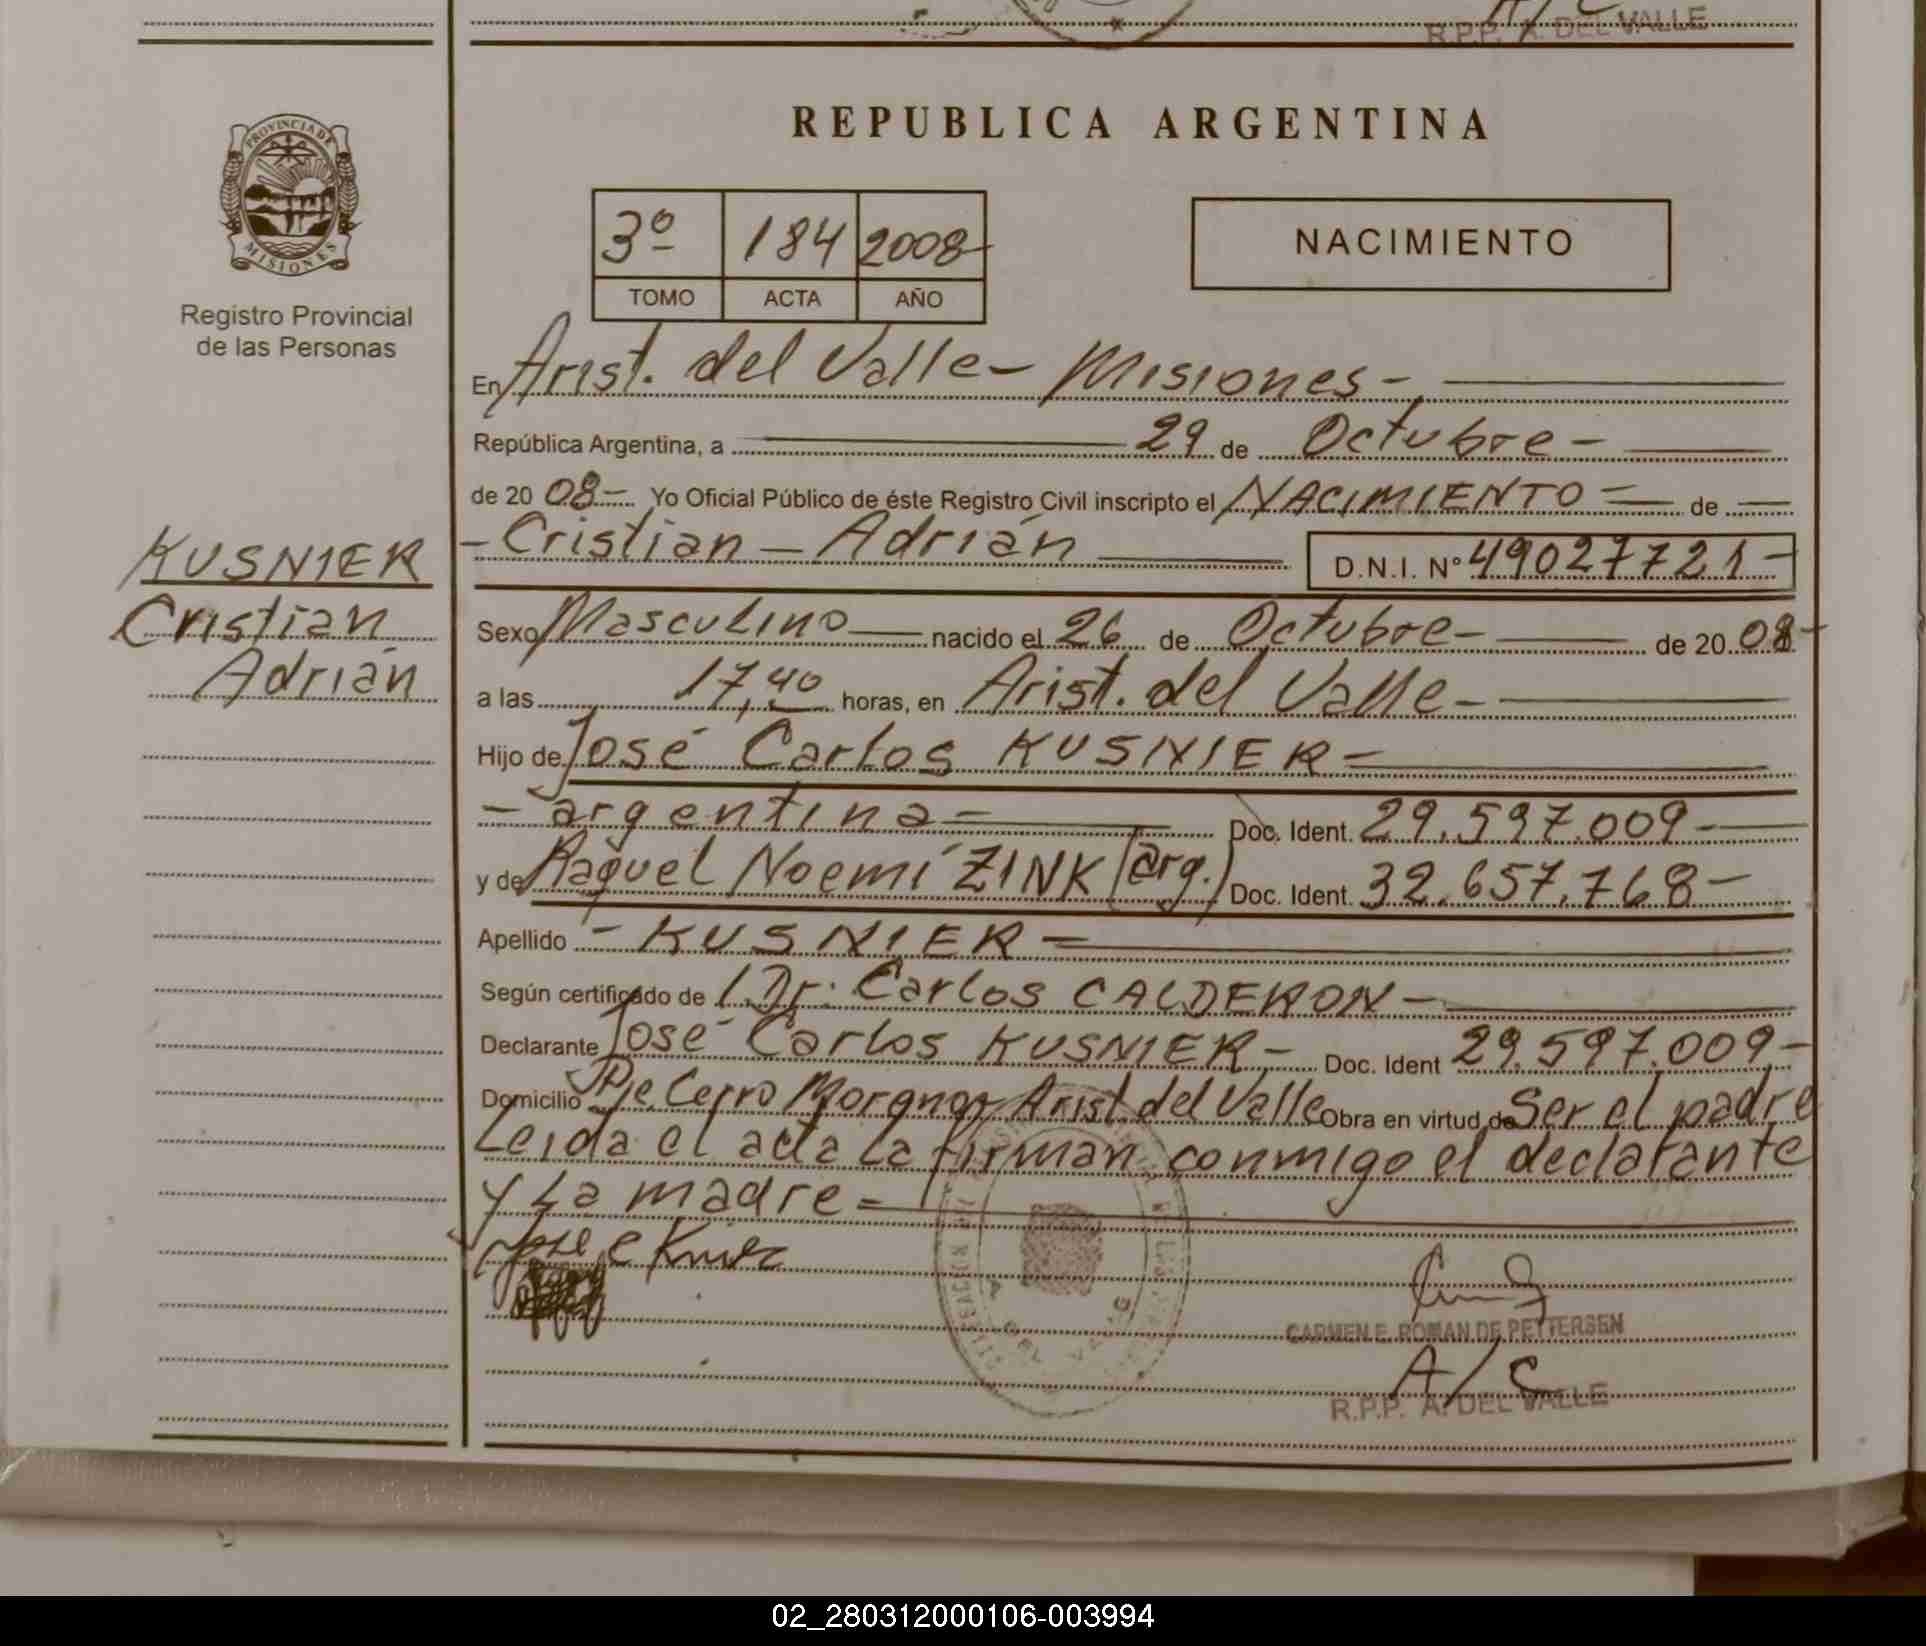 R.P.P. A. DEL VALLE
PROVINCIA DE
MISIONES
Registro Provincial
de las Personas
REPUBLICA ARGENTINA
3º 184 2008-
TOMO ACTA AÑO
NACIMIENTO
En Arist. del Valle - Misiones -
República Argentina, a 29 de Octubre -
de 20 08- Yo Oficial Público de éste Registro Civil inscripto el NACIMIENTO - de
KUSNIER
Cristian
Adrián
- Cristian - Adrián D.N.I. Nº 49027721-
Sexo Masculino nacido el 26 de Octubre - de 20 08-
a las 17,40 horas, en Arist. del Valle -
Hijo de José Carlos KUSNIER -
- argentina - Doc. Ident. 29.597.009-
y de Raquel Noemí ZINK (arg.) Doc. Ident. 32.657.768-
Apellido - KUSNIER -
Según certificado de Dr. Carlos CALDERON -
Declarante José Carlos KUSNIER - Doc. Ident 29.597.009-
Domicilio Pje. Cerro Arist del Valle Obra en virtud de Ser el padre
Leida el acta la firman conmigo el declarante
y la madre -
CARMEN E. ROMAN DE PETTERSEN
A/C
R.P.P. A. DEL VALLE
02_280312000106-003994